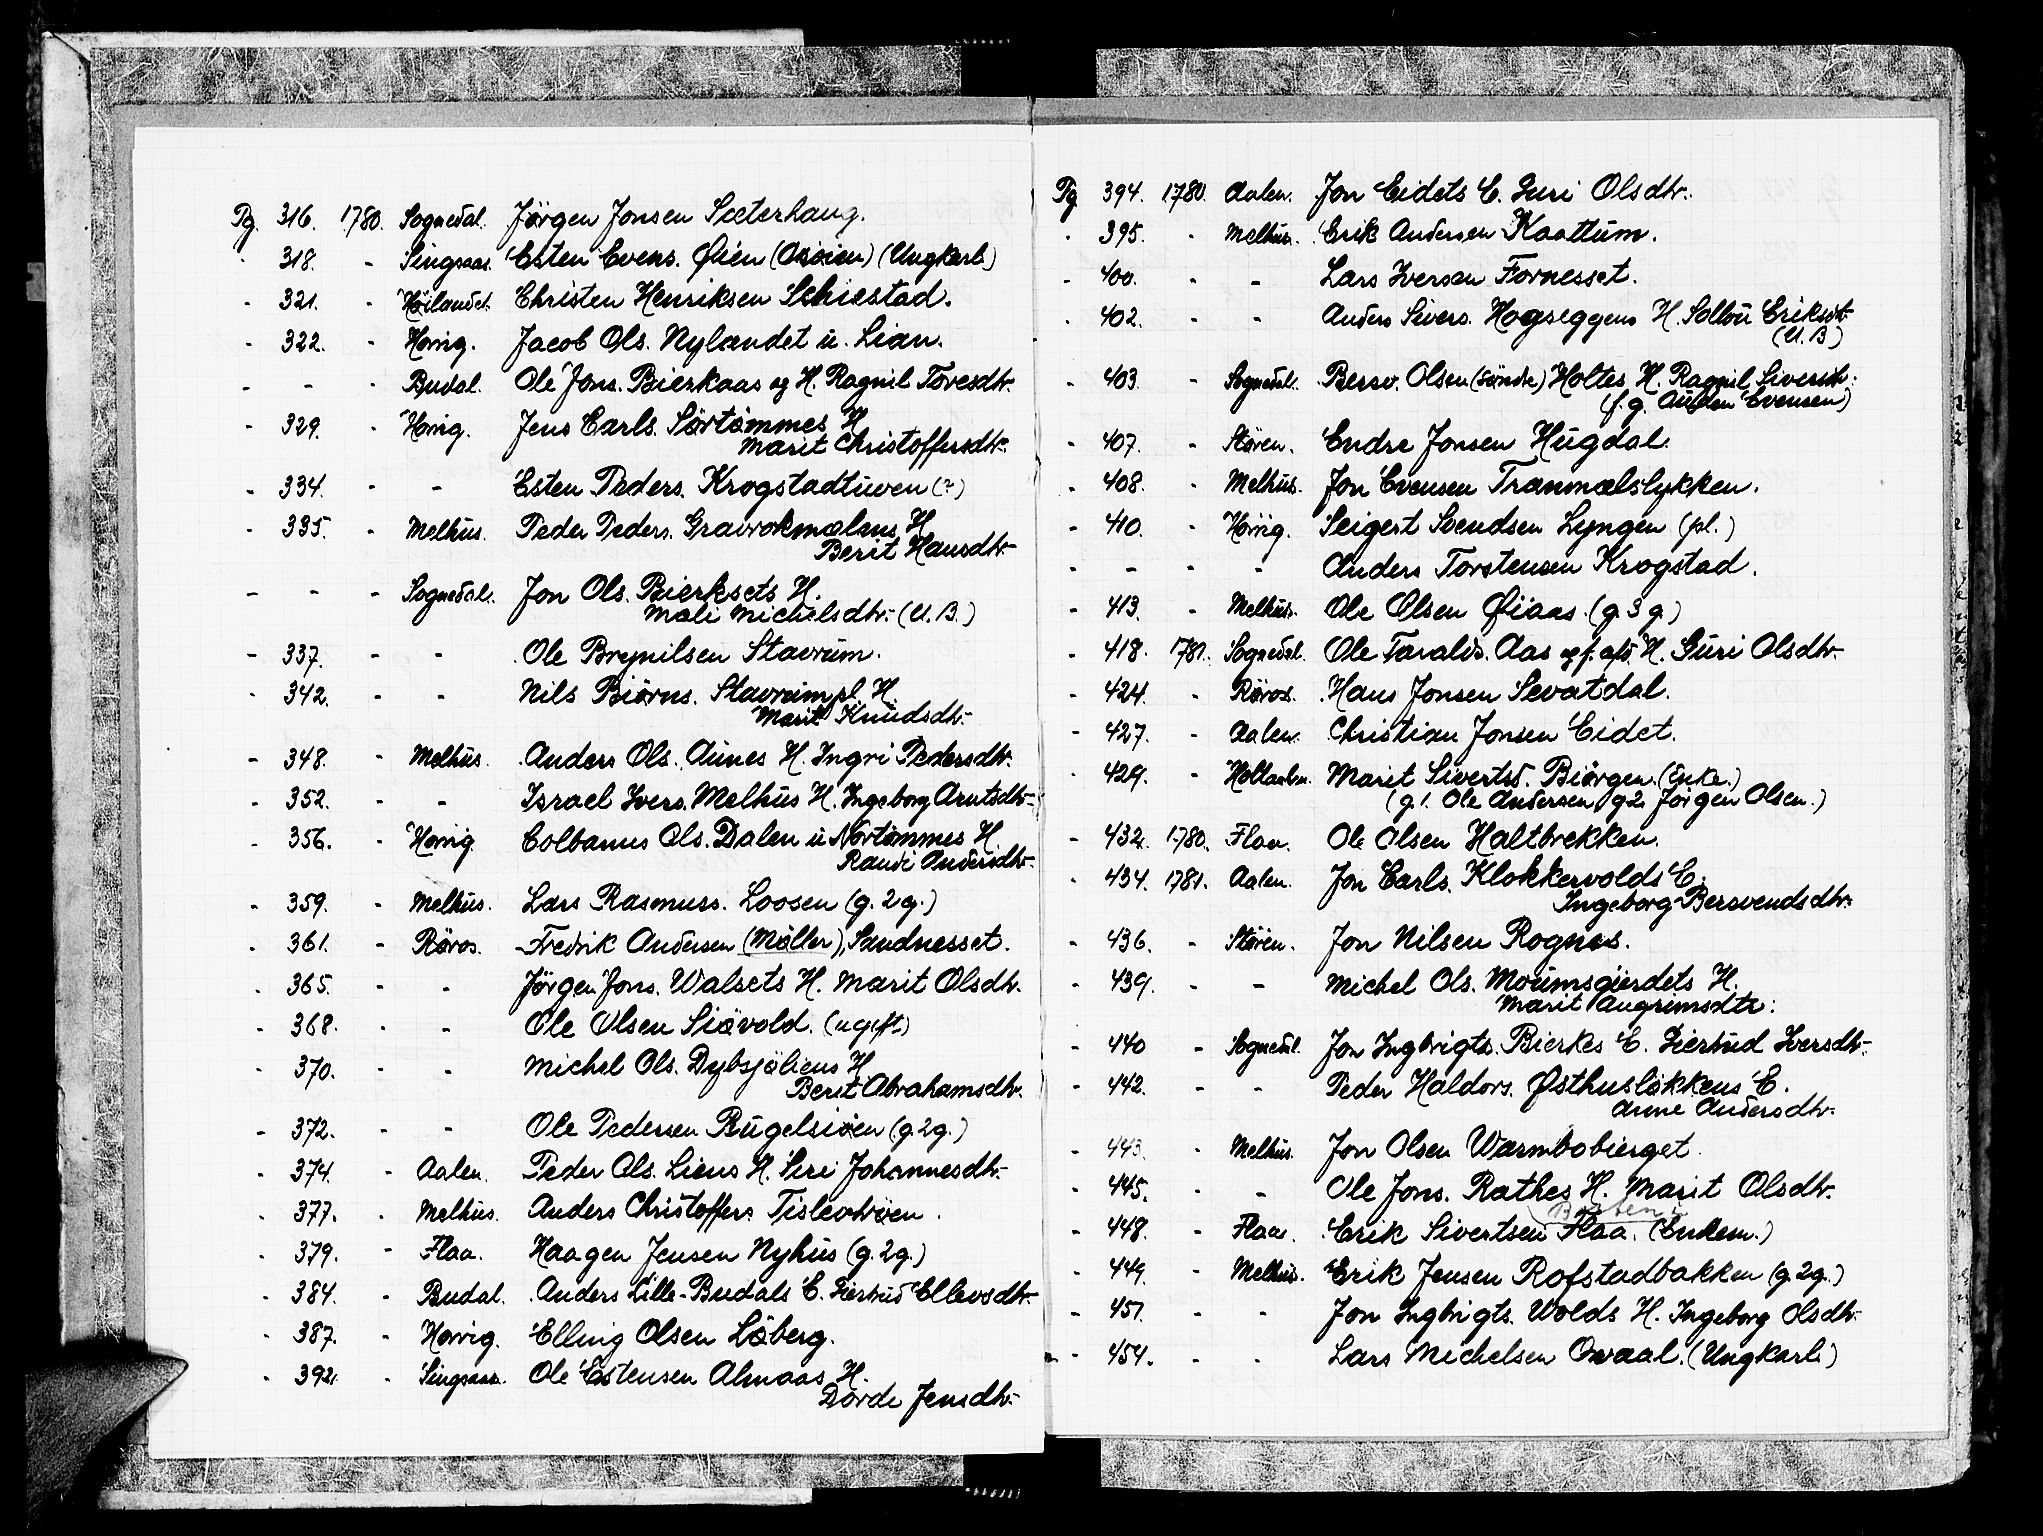 Pg. 316. 1780. Sognedal. Jörgen Jonsen Sæterhaug.
- 318. - Singsaas. Esten Evens. Øien (Osøien) (Ungkarl)
- 321. - Höilandet. Christen Henriksen Schiestad.
- 322. - Horrig. Jacob Ols. Nylandet u. Lian.
- - - Budal. Ole Jons. Bierkaas og H. Ragnil Toresdtr.
- 329. - Horrig. Jens Carls. Sørtømmes H
Marit Christoffersdtr.
- 334. - - Esten Peders. Krogstadtuven (?)
- 335. - Melhus. Peder Peders. Gravrokmælens H
Berit Hansdtr.
- - - Sognedal. Jon Ols. Bierksets H.
Mali Michelsdtr. (U.B.)
- 337. - - Ole Brynilsen Stavrum.
- 342. - - Nils Biörns. Stavrum pl. H.
Marit Knudsdtr.
- 348. - Melhus. Anders Ols. Aunes H. Ingri Pedersdtr.
- 352. - - Israel Ivers. Melhus H. Ingeborg Arntsdtr.
- 356. - Horrig Colbanus Ols. Dalen u Nortømmes H.
Randi Andersdtr.
- 359. - Melhus. Lars Rasmuss. Loosen (g. 2g.)
- 361. - Röros. Fredrik Andersen (Møller), Sandnesset.
- 365. - - Jörgen Jons. Walsets H. Marit Olsdtr.
- 368. - - Ole Olsen Siøvold. (ugift)
- 370. - - Michel Ols. Dybsjöliens H
Berit Abrahamsdtr.
- 372. - - Ole Pedersen Rugelsiøen (g. 2g.)
- 374. - Aalen. Peder Ols. Liens H. Siri Johannesdtr.
- 377. - Melhus. Anders Christoffers Tislovtröen.
- 379. - Flaa. Haagen Jensen Nyhus (g. 2g.)
- 384. - Budal. Anders Lille-Budals E. Giertrud Ellevsdtr.
- 387. - Horrig. Elling Olsen Löberg.
- 392. - Singsaas. Ole Estensen Almaas H.
Dorde Jensdtr.
Pg 394. 1780. Aalen. Jon Eidets E. Guri Olsdtr.
- 395. - Melhus. Erik Andersen Kaattum.
- 400. - - Lars Iversen Fornesset.
- 402. - - Anders Sivers. Hogseggens H. Sollou Eriksdt
(U.B)
- 403. - Sognedal. Bersv. Olsen (søndre) Holtes H. Ragnil Siversdtr.
(f. g. Audun Evensen)
- 407. - Støren. Endre Jonsen Hugdal.
- 408. - Melhus. Jon Evensen Tranmælslykken.
- 410. - Horrig. Seigert Svendsen Lyngen (pl.)
- - - - Anders Torstensen Krogstad.
- 413. - Melhus. Ole Olsen Øiaas. (g. 3 g)
- 418. 1781. Sognedal. Ole Taralds. Aas og f. afd. H. Guri Olsdtr.
- 424. - Röros. Hans Jonsen Sevatdal.
- 427. - Aalen. Christian Jonsen Eidet.
- 429. - Holtaalen. Marit Sivertsd. Biörgen. (Enke.)
(g 1. Ole Andersen g 2. Jörgen Olsen.)
- 432. 1780. Flaa. Ole Olsen Haltbrekken.
- 434. 1781. Aalen. Jon Carls. Klokkervolds E.
Ingeborg Bersvendsdtr.
- 436. - Støren. Jon Nilsen Rognes.
- 439. - - Michel Ols. Moumsgierdets H.
Marit Angrimsdtr.
- 440 - Sognedal. Jon Ingbrigts. Bierkes E. Giertrud Iversdtr.
- 442. - - Peder Haldors. Østhusløkkens E.
Anne Andersdtr.
- 443. - Melhus. Jon Olsen Warmbobierget.
- 445. - - Ole Jons. Rathes H. Marit Olsdtr.
- 448. - Flaa. Erik Sivertsen Flaa. (Enkem.)
- 449. - Melhus. Erik Jensen Rofstadbakken (g. 2g.)
- 451. - - Jon Ingbrigts. Wolds H. Ingeborg Olsdtr.
- 454. - - Lars Michelsen Ovaal. (Ungkarl.)